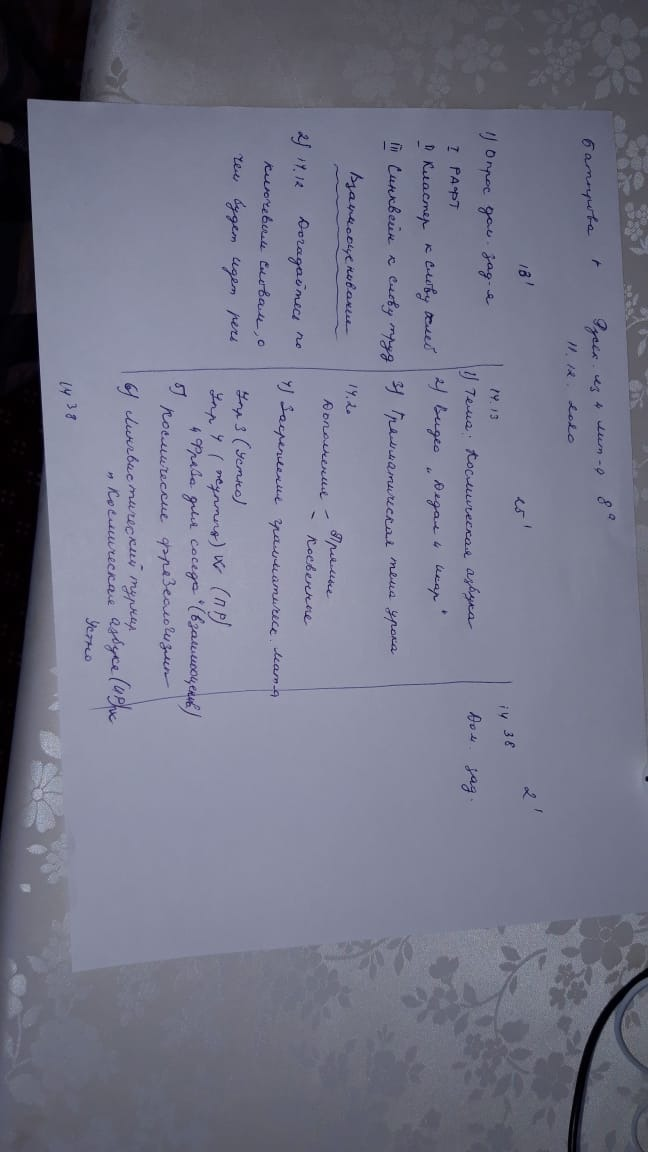 Русск. яз и лит-а 8ª
11. 12. 2020
18'
1) Опрос дом. зад-я
I РАФТ
II Кластер к слову хлеб
III Синквейн к слову труд
Взаимооценивание
2) 14.12 Догадайтесь по
ключевым словам, о
чем будет идет речь
25'
14.13
1) Тема: Космическая азбука
2) Видео „Дедал и Икар"
3) Грамматическая тема урока
14.20
Дополнение < Прямые
Косвенные
4) Закрепление грамматическ. мат-а
Упр 3 (устно)
Упр 4 (группа) (ПР)
"Фраза для соседа" (взаимооценив)
5) Космические фразеологизмы
6) Лингвистический турнир
„Космическая азбука (ИР)
Устно
14 38
2'
14 38
Дом. зад.